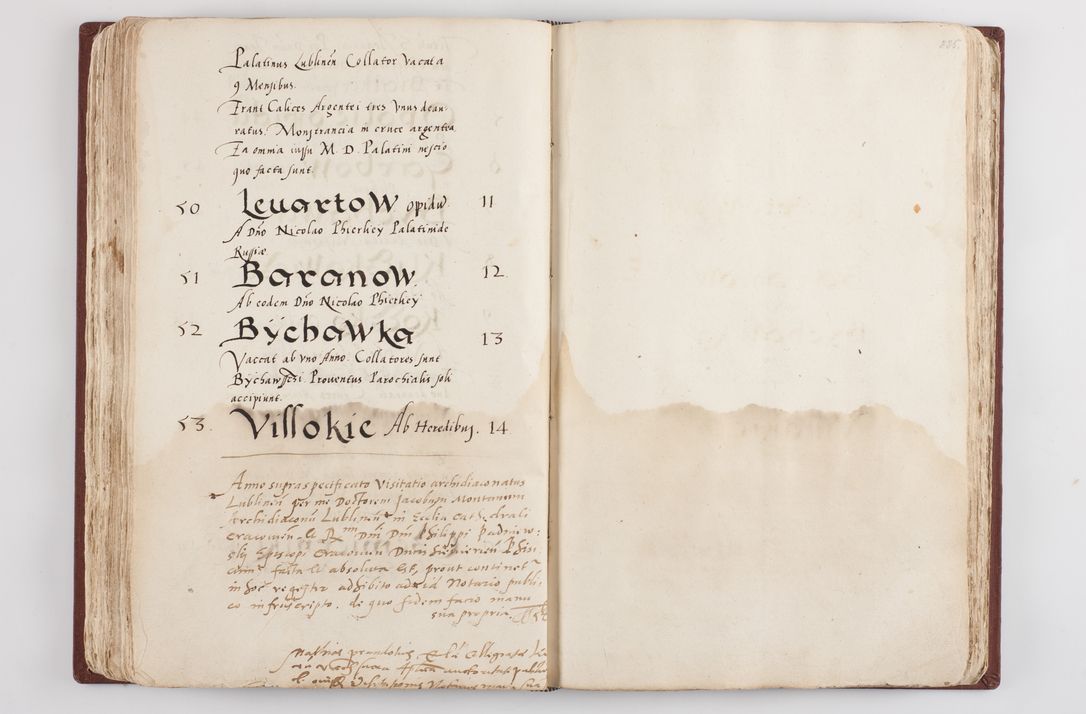 Palatinus Lublinen̄ Collator vacat a
9 Mensibus.
Erant Calices Argentei tres Vnus deau-
ratus. Monstrancia in cruce argentea
Ea omnia iussu M. D. Palatini nescio
quo facta sunt.
50 Levartow opidū. 11
A Dn̄o Nicolao Phierhey Palatinide
Russiæ
51 Baranow. 12
Ab eodem Dn̄o Nicolao Phierhey
52 Bÿchawka 13
Vaccat ab vno Anno. Collatores sunt
Bÿchawssci. Proventus Parochialis soli
accipiunt.
53. Villokie Ab Heredibus. 14
Anno supraspecificato Visitatio archidiaconatus
Lublinen̄ per me Doctorem Jacobum Montanum
Archidiaconū Lublinen̄ in Ecclia Cathedrali
Cracovien̄ Dn̄i Dn̄i Philippi Padniew:
skj Episcopi Cracovien̄
facta et absoluta est, prout continet
in hoc regestr adhibito Notario publi:
co infrascripto. de quo fidem facio manu
sua propria
235.